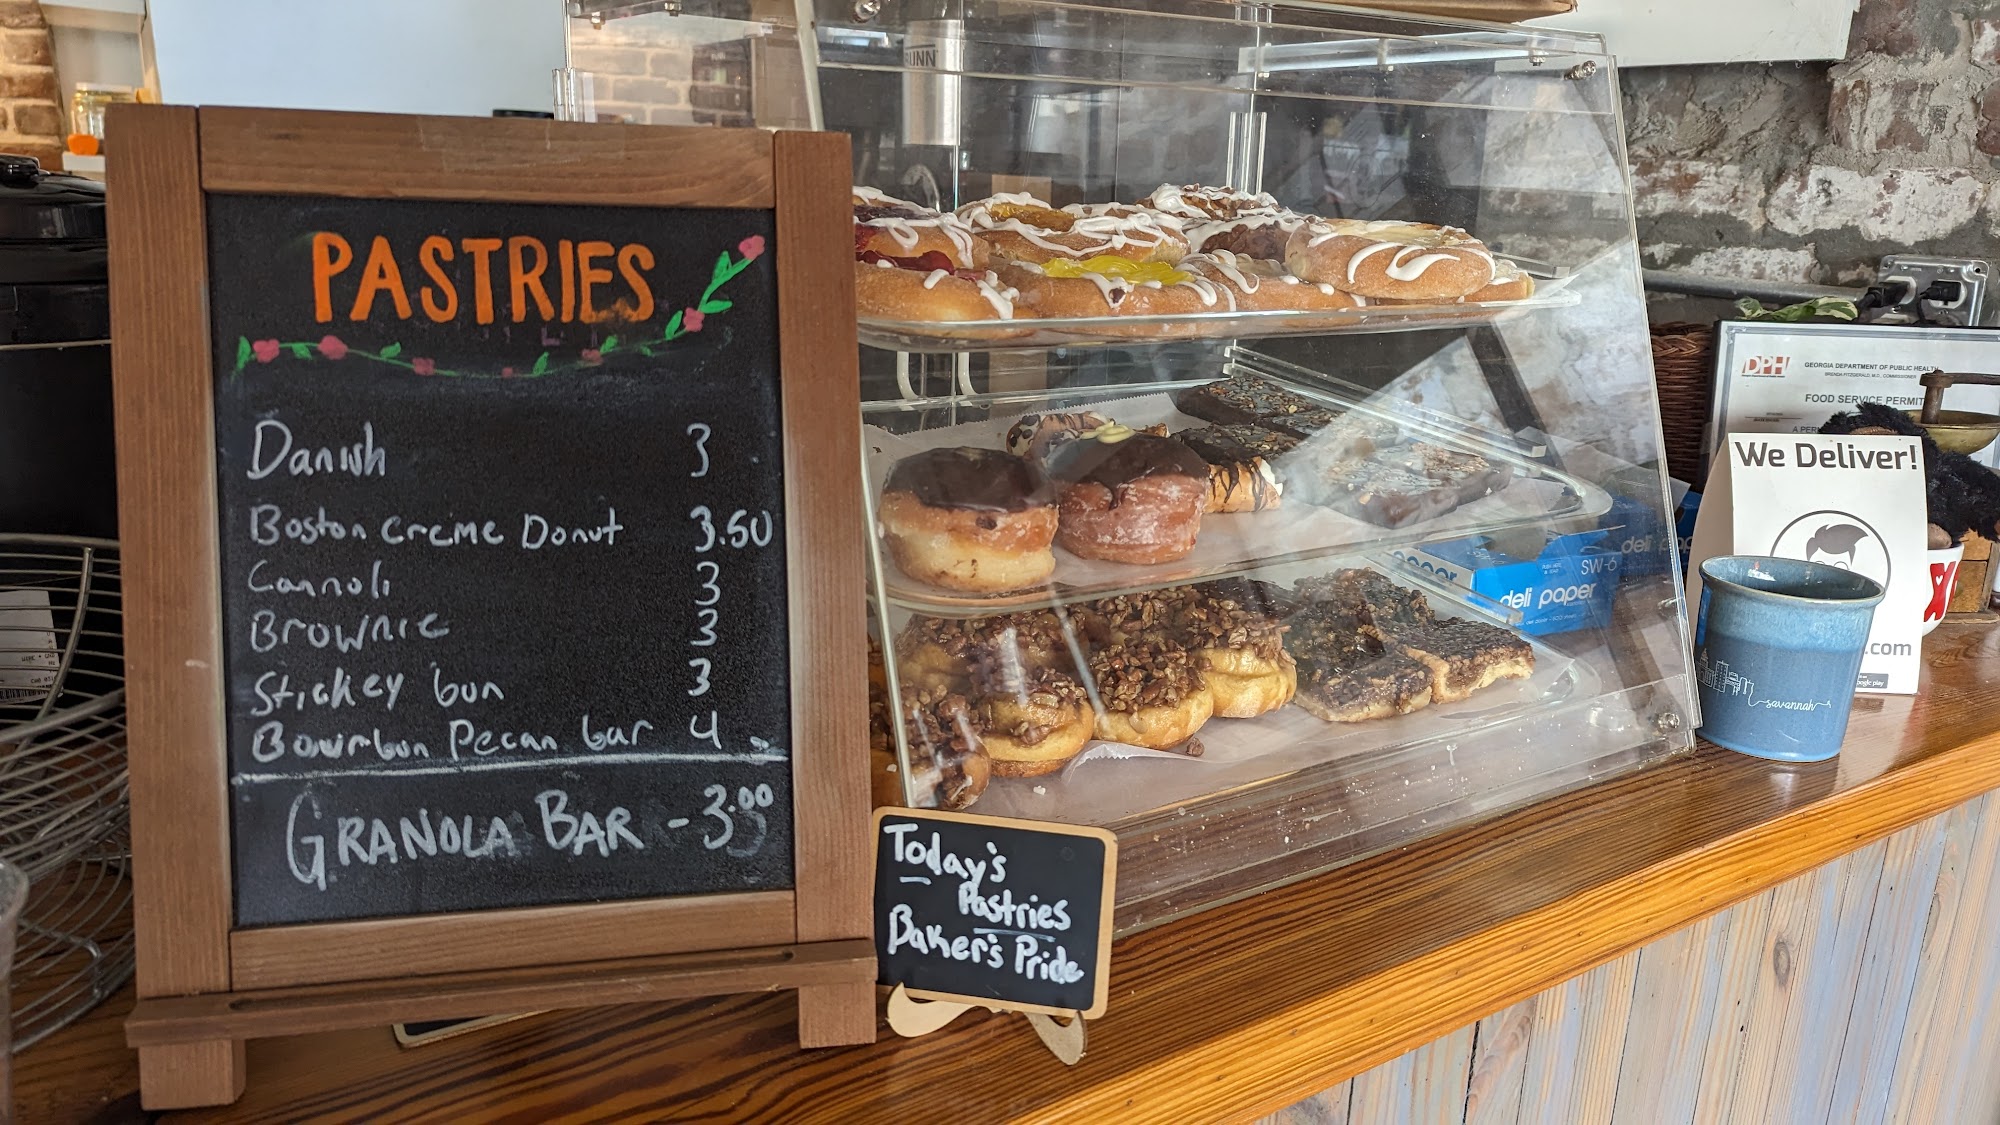 PASTRIES
Danish 3
Boston Creme Donut 3.50
Cannoli 3
Brownie 3
Stickey bun 3
Bourbon Pecan bar 4
GRANOLA BAR - 3.00
Today's
Pastries
Baker's Pride
BUNN
DPH
GEORGIA DEPARTMENT OF PUBLIC HEALTH
BRENDA FITZGERALD, M.D., COMMISSIONER
FOOD SERVICE PERMIT
We Deliver!
.com
savannah
SW-6
deli paper